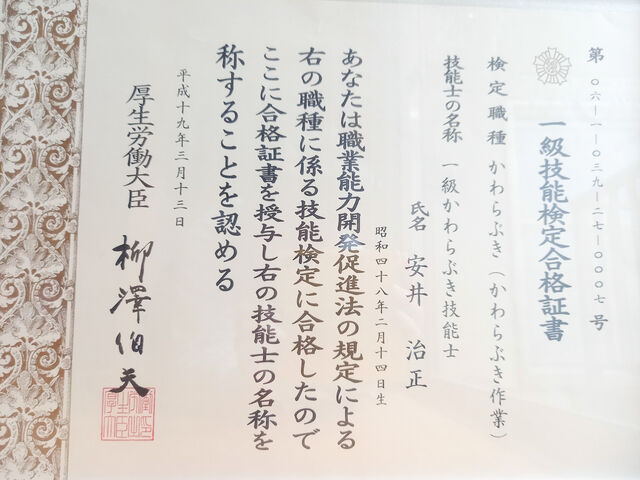 第〇六-一-〇三九-二七-〇〇〇七号
一級技能検定合格証書
検定職種 かわらぶき(かわらぶき作業)
技能士の名称 一級かわらぶき技能士
氏名 安井 治正
昭和四十八年二月十四日生
あなたは職業能力開発促進法の規定による
右の職種に係る技能検定に合格したので
ここに合格証書を授与し右の技能士の名称を
称することを認める
平成十九年三月十三日
厚生労働大臣 柳澤伯夫